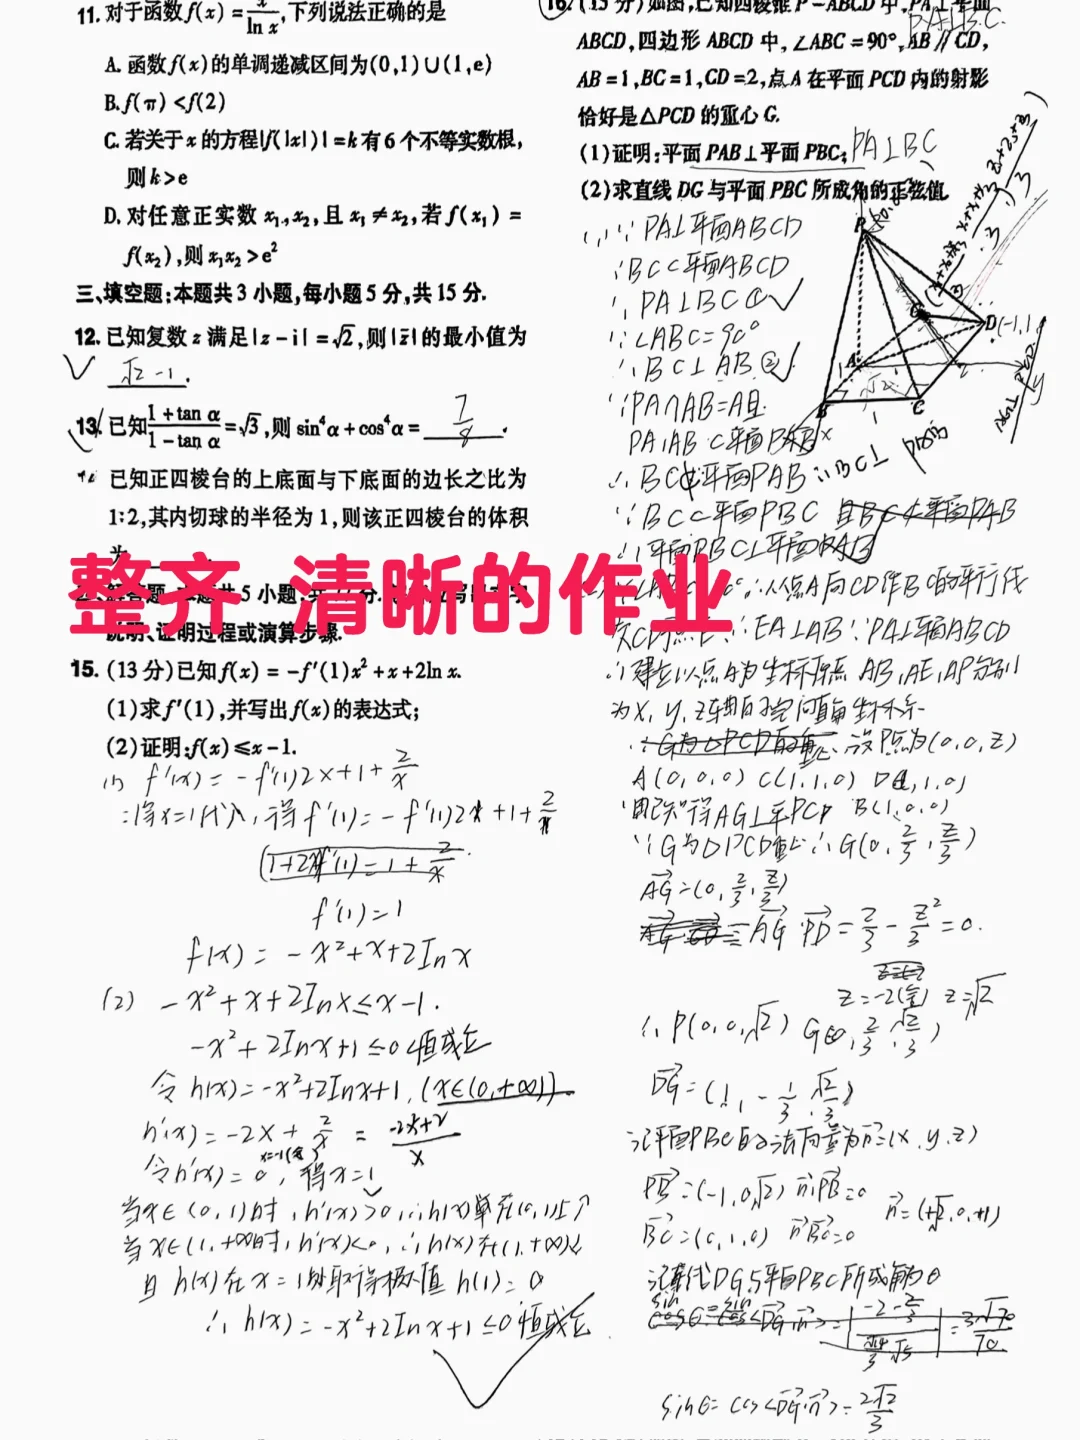 11. 对于函数f(x)=x/ln x,下列说法正确的是
A. 函数f(x)的单调递减区间为(0,1)∪(1,e)
B. f(π)<f(2)
C. 若关于x的方程|f(|x|)|=k有6个不等实数根,
则k>e
D. 对任意正实数x₁,x₂,且x₁≠x₂,若f(x₁)=
f(x₂),则x₁x₂>e²
三、填空题:本题共3小题,每小题5分,共15分.
12. 已知复数z满足|z-i|=√2,则|z̄|的最小值为
√2-1.
13. 已知(1+tan α)/(1-tan α)=√3,则sin⁴α+cos⁴α=7/8.
已知正四棱台的上底面与下底面的边长之比为
1:2,其内切球的半径为1,则该正四棱台的体积
为
整齐 清晰的作业
说明、证明过程或演算步骤.
15. (13分)已知f(x)=-f′(1)x²+x+2ln x.
(1)求f′(1),并写出f(x)的表达式;
(2)证明:f(x)≤x-1.
(1) f′(x)=-f′(1)2x+1+2/x
∴将x=1代入,得f′(1)=-f′(1)2x+1+2/x
f′(1)=1
f(x)=-x²+x+2Inx
(2) -x²+x+2Inx≤x-1.
-x²+2Inx+1≤0恒成立
令h(x)=-x²+2Inx+1,(x∈(0,+∞))
h′(x)=-2x+2/x=
令h′(x)=0,得x=1
当x∈(0,1)时,h′(x)>0,∴h(x)单在(0,1)上↑
当x∈(1,+∞)时,h′(x)<0,∴h(x)在(1,+∞)↓
且h(x)在x=1处取得极大值h(1)=0
∴h(x)=-x²+2Inx+1≤0恒成立
16. (15分)如图,已知四棱锥P-ABCD中,PA⊥平面
ABCD,四边形ABCD中,∠ABC=90°,AB∥CD,
AB=1,BC=1,CD=2,点A在平面PCD内的射影
恰好是△PCD的重心G.
(1)证明:平面PAB⊥平面PBC; PA⊥BC
(2)求直线DG与平面PBC所成角的正弦值
P
G
D
A
B
C
(1)∵PA⊥平面ABCD
∵BC⊂平面ABCD
∴PA⊥BC①
∵∠ABC=90°
∴BC⊥AB②
∵PA∩AB=A且
PA,AB⊂平面PAB
∴BC⊥平面PAB
∵BC⊂平面PBC
∴平面PBC⊥平面PAB
∴从点A向CD作BC的平行线
∵EA⊥AB∵PA⊥平面ABCD
∴建立以点A为坐标原点 AB,AE,AP分别
为x,y,z轴的空间直角坐标系
设P点为(0,0,z)
A(0,0,0) C(1,1,0)
由已知得AG⊥平PCD B(1,0,0)
∵G为△PCD重心∴G(0,2/3,z/3)
AG=(0,2/3,z/3)
AG·PD=2/3-z²/3=0.
z=-2(舍) z=√2
∴P(0,0,√2) G(0,2/3,√2/3)
DG=(1,-1/3,√2/3)
记平面PBC的法向量为n=(x,y,z)
PB=(-1,0,√2) n·PB=0
BC=(0,1,0) n·BC=0
记直线DG与平面PBC所成角为θ
sinθ=cos<DG·n>=2√2/3